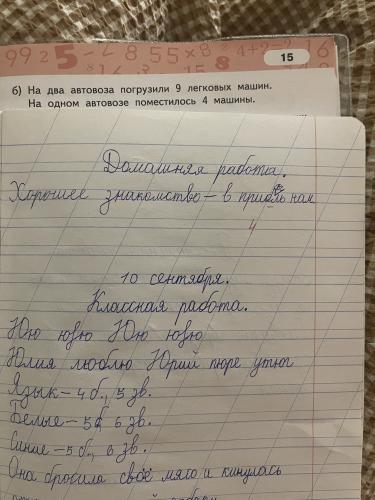 99 2 5 - 4 8 55 × 8 2 4+2=2 16
15 8
15
б) На два автовоза погрузили 9 легковых машин.
На одном автовозе поместилось 4 машины.
Домашняя работа.
Хорошее знакомство – в прибыль нам
4
10 сентября.
Классная работа.
Юю юю Юю юю
Юлия люблю Юрий пюре утюг
Язык – 4 б., 5 зв.
Белые – 5 б 6 зв.
Синие – 5 б., 6 зв.
Она бросила своё мясо и кинулась